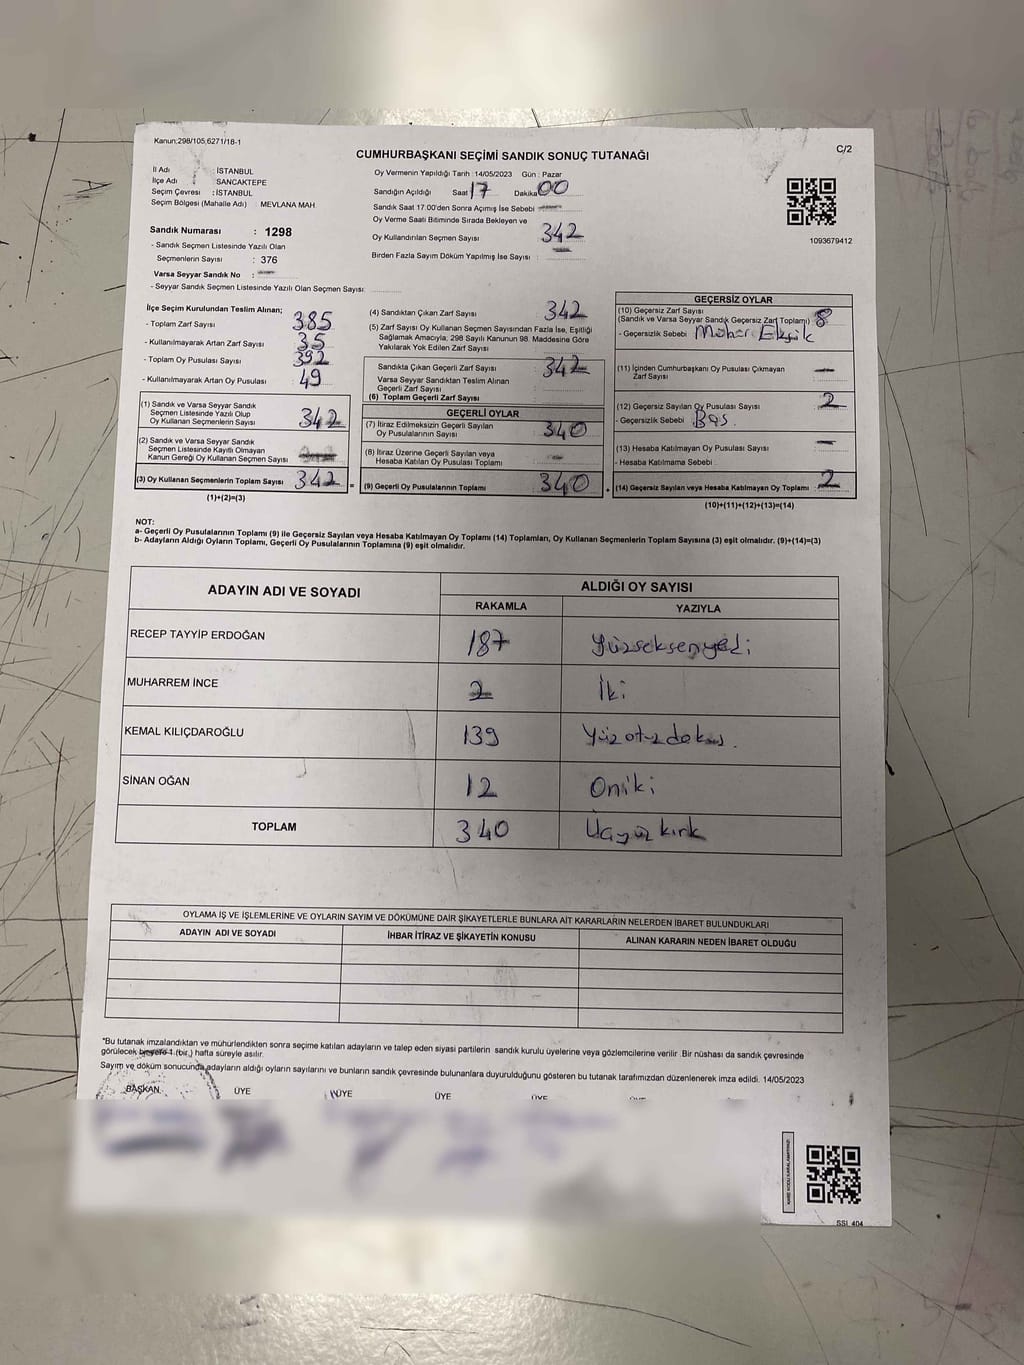 Kanun:298/105,6271/18-1
C/2
CUMHURBAŞKANI SEÇİMİ SANDIK SONUÇ TUTANAĞI
İl Adı : İSTANBUL
İlçe Adı : SANCAKTEPE
Seçim Çevresi : İSTANBUL
Seçim Bölgesi (Mahalle Adı) : MEVLANA MAH.
Sandık Numarası : 1298
- Sandık Seçmen Listesinde Yazılı Olan
Seçmenlerin Sayısı : 376
Varsa Seyyar Sandık No :
- Seyyar Sandık Seçmen Listesinde Yazılı Olan Seçmen Sayısı:
Oy Vermenin Yapıldığı Tarih : 14/05/2023 Gün : Pazar
Sandığın Açıldığı Saat 17 Dakika 00
Sandık Saat 17.00'den Sonra Açılmış İse Sebebi
Oy Verme Saati Bitiminde Sırada Bekleyen ve
Oy Kullandırılan Seçmen Sayısı : 342
Birden Fazla Sayım Döküm Yapılmış İse Sayısı :
1093679412
İlçe Seçim Kurulundan Teslim Alınan;
- Toplam Zarf Sayısı : 385
- Kullanılmayarak Artan Zarf Sayısı : 35
- Toplam Oy Pusulası Sayısı : 392
- Kullanılmayarak Artan Oy Pusulası : 49
(1) Sandık ve Varsa Seyyar Sandık
Seçmen Listesinde Yazılı Olup
Oy Kullanan Seçmenlerin Sayısı : 342
(2) Sandık ve Varsa Seyyar Sandık
Seçmen Listesinde Kayıtlı Olmayan
Kanun Gereği Oy Kullanan Seçmen Sayısı :
(3) Oy Kullanan Seçmenlerin Toplam Sayısı : 342
(1)+(2)=(3)
(4) Sandıktan Çıkan Zarf Sayısı : 342
(5) Zarf Sayısı Oy Kullanan Seçmen Sayısından Fazla İse, Eşitliği
Sağlamak Amacıyla, 298 Sayılı Kanunun 98. Maddesine Göre
Yakılarak Yok Edilen Zarf Sayısı
Sandıkta Çıkan Geçerli Zarf Sayısı : 342
Varsa Seyyar Sandıktan Teslim Alınan
Geçerli Zarf Sayısı
(6) Toplam Geçerli Zarf Sayısı
GEÇERLİ OYLAR
(7) İtiraz Edilmeksizin Geçerli Sayılan
Oy Pusulalarının Sayısı : 340
(8) İtiraz Üzerine Geçerli Sayılan veya
Hesaba Katılan Oy Pusulası Toplamı :
(9) Geçerli Oy Pusulalarının Toplamı : 340
GEÇERSİZ OYLAR
(10) Geçersiz Zarf Sayısı
(Sandık ve Varsa Seyyar Sandık Geçersiz Zarf Toplamı) : 8
- Geçersizlik Sebebi : Mühür Eksik
(11) İçinden Cumhurbaşkanı Oy Pusulası Çıkmayan
Zarf Sayısı
(12) Geçersiz Sayılan Oy Pusulası Sayısı : 2
- Geçersizlik Sebebi : Boş.
(13) Hesaba Katılmayan Oy Pusulası Sayısı :
- Hesaba Katılmama Sebebi :
(14) Geçersiz Sayılan veya Hesaba Katılmayan Oy Toplamı : 2
(10)+(11)+(12)+(13)=(14)
NOT:
a- Geçerli Oy Pusulalarının Toplamı (9) ile Geçersiz Sayılan veya Hesaba Katılmayan Oy Toplamı (14) Toplamları, Oy Kullanan Seçmenlerin Toplam Sayısına (3) eşit olmalıdır. (9)+(14)=(3)
b- Adayların Aldığı Oyların Toplamı, Geçerli Oy Pusulalarının Toplamına (9) eşit olmalıdır.
ADAYIN ADI VE SOYADI
ALDIĞI OY SAYISI
RAKAMLA YAZIYLA
RECEP TAYYİP ERDOĞAN 187 Yüzseksenyedi
MUHARREM İNCE 2 İki
KEMAL KILIÇDAROĞLU 139 Yüzotuzdokuz.
SİNAN OĞAN 12 Oniki
TOPLAM 340 Üçyüz kırk
OYLAMA İŞ VE İŞLEMLERİNE VE OYLARIN SAYIM VE DÖKÜMÜNE DAİR ŞİKAYETLERLE BUNLARA AİT KARARLARIN NELERDEN İBARET BULUNDUKLARI
ADAYIN ADI VE SOYADI İHBAR İTİRAZ VE ŞİKAYETİN KONUSU ALINAN KARARIN NEDEN İBARET OLDUĞU
*Bu tutanak imzalandıktan ve mühürlendikten sonra seçime katılan adayların ve talep eden siyasi partilerin sandık kurulu üyelerine veya gözlemcilerine verilir. Bir nüshası da sandık çevresinde
görülecek bir yere 1 (bir.) hafta süreyle asılır.
Sayım ve döküm sonucunda adayların aldığı oyların sayılarını ve bunların sandık çevresinde bulunanlara duyurulduğunu gösteren bu tutanak tarafımızdan düzenlenerek imza edildi. 14/05/2023
BAŞKAN ÜYE ÜYE ÜYE ÜYE
SSL 404